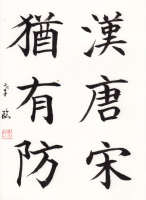 漢唐宋
猶有防